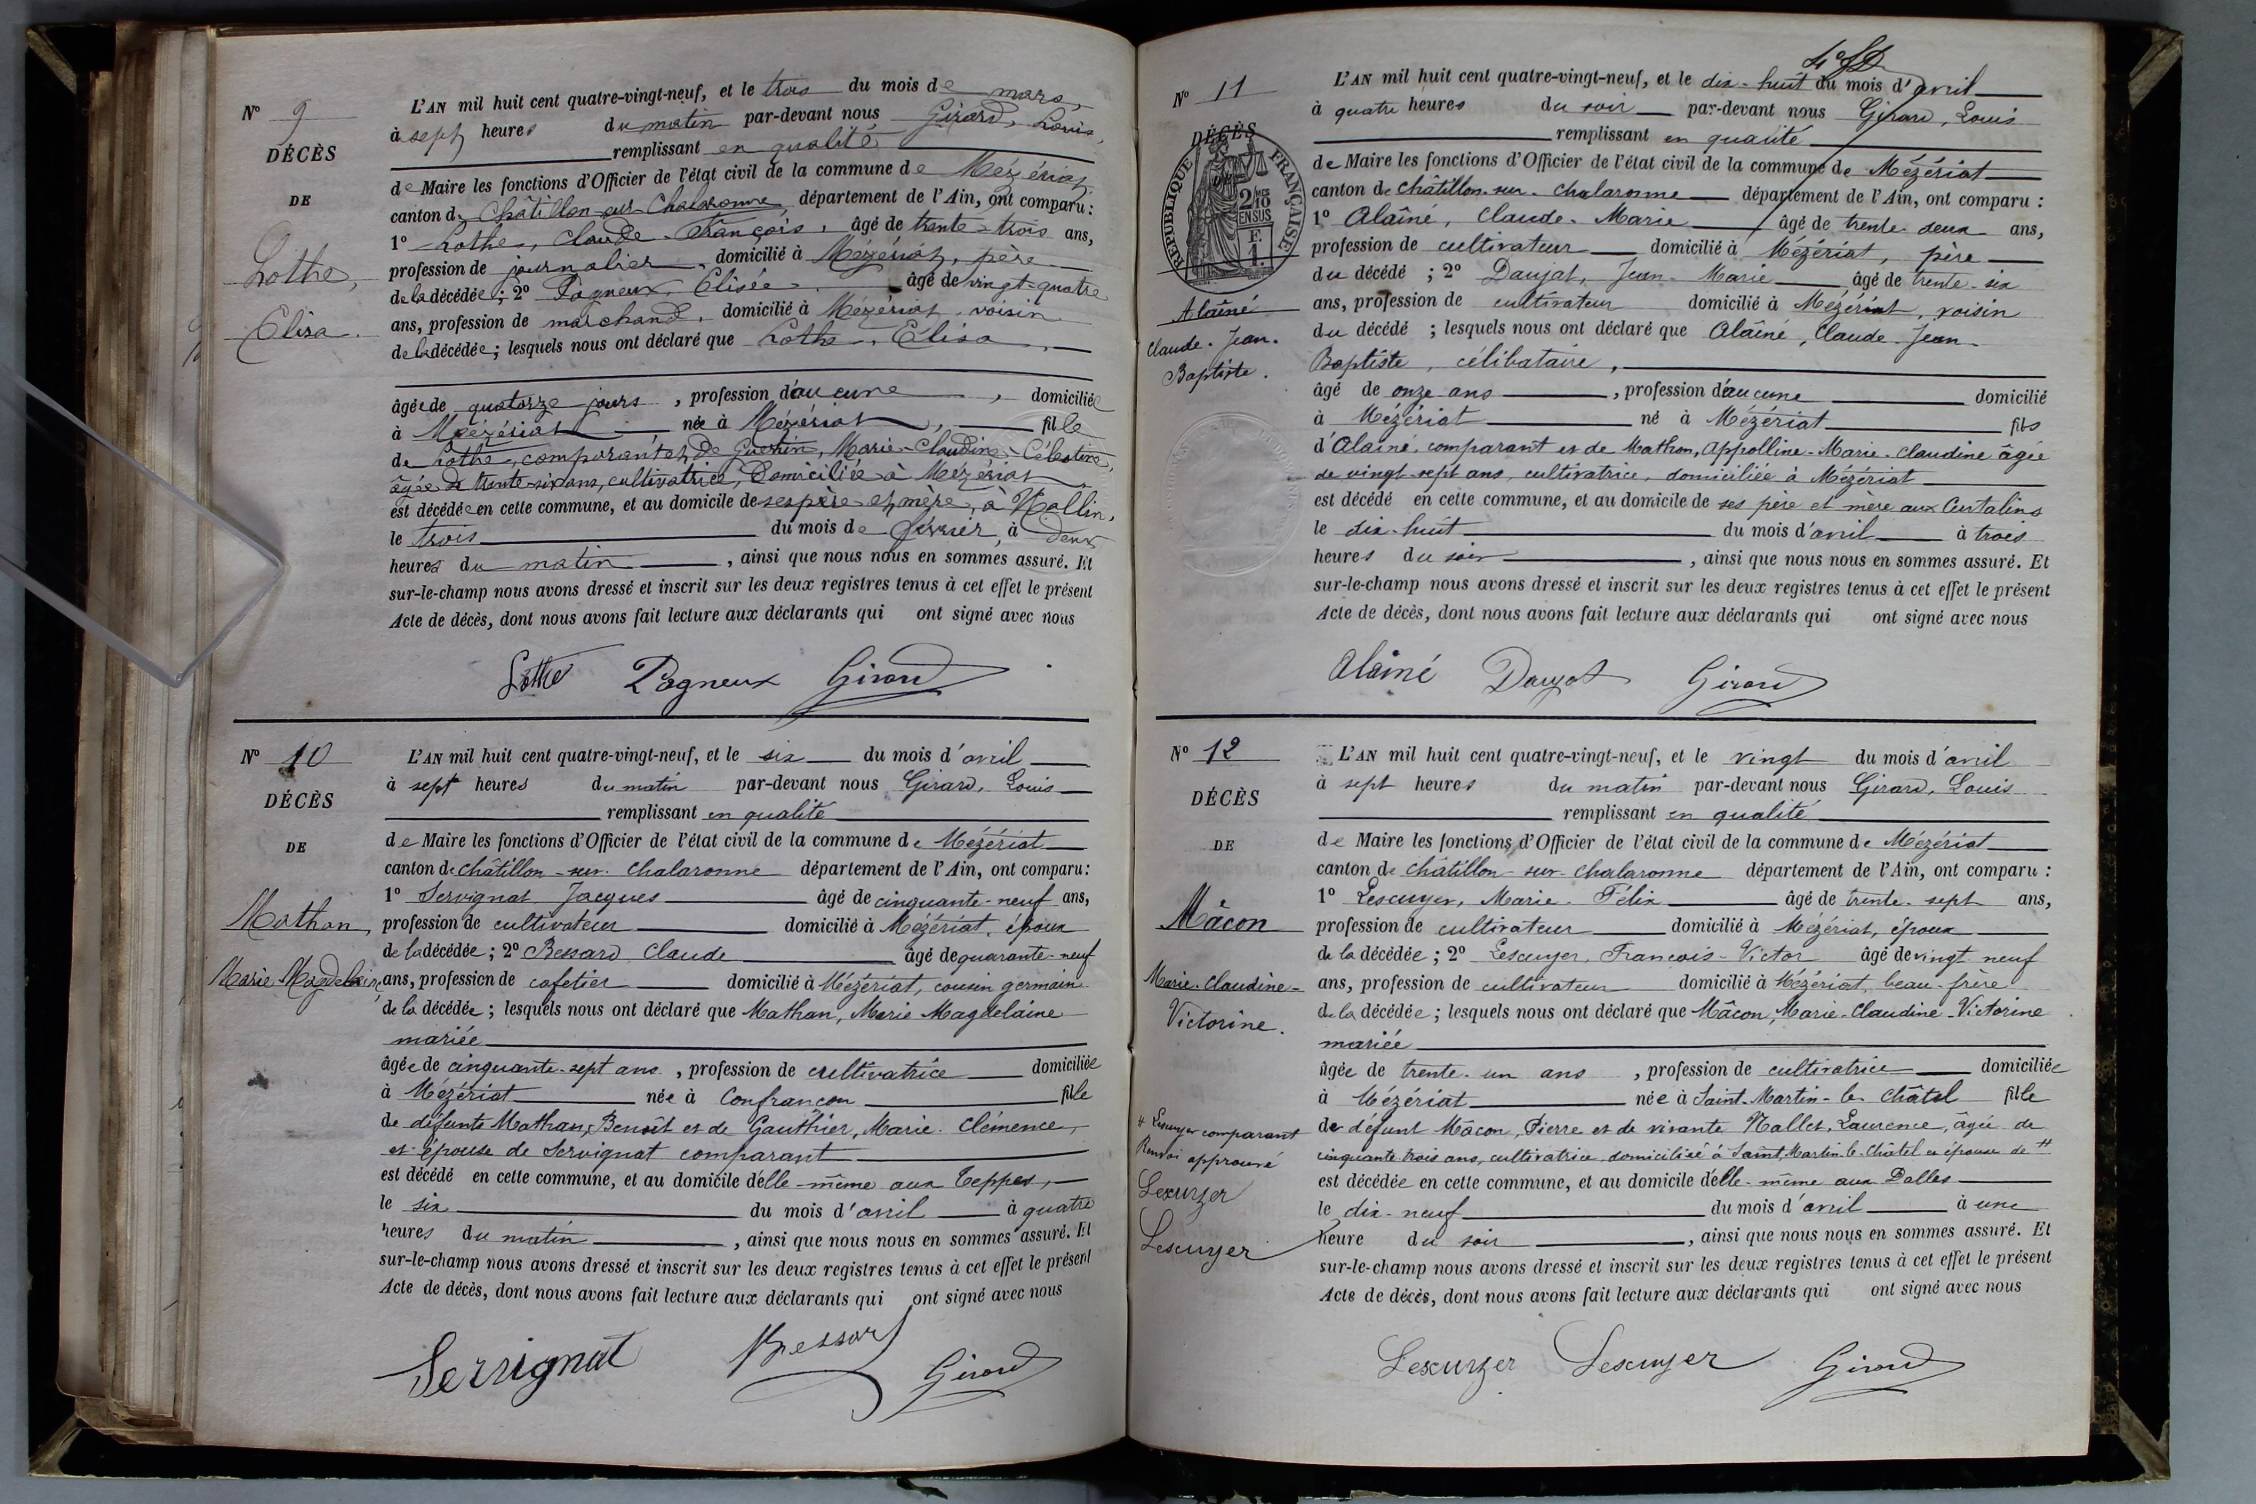 N° 9
DÉCÈS
DE
Lothe,
Elisa.
L'AN mil huit cent quatre-vingt-neuf, et le trois du mois de mars,
à sept heures du matin par-devant nous Girard, Louis,
remplissant en qualité
de Maire les fonctions d'Officier de l'état civil de la commune de Mézériat,
canton de Châtillon sur Chalaronne département de l'Ain, ont comparu :
1° Lothe, Claude-François, âgé de trente-trois ans,
profession de journalier, domicilié à Mézériat, père
de la décédée ; 2° Pagneux Elisée, âgé de vingt-quatre
ans, profession de marchand, domicilié à Mézériat, voisin
de la décédée ; lesquels nous ont déclaré que Lothe, Élisa,
âgée de quatorze jours, profession d'aucune, domiciliée
à Mézériat née à Mézériat, fille
de Lothe, comparant et de Guérin, Marie-Claudine-Célestine,
âgée de trente-six ans, cultivatrice, domiciliée à Mézériat
est décédée en cette commune, et au domicile de ses père et mère, à Mollin,
le trois du mois de février, à deux
heures du matin, ainsi que nous nous en sommes assuré. Et
sur-le-champ nous avons dressé et inscrit sur les deux registres tenus à cet effet le présent
Acte de décès, dont nous avons fait lecture aux déclarants qui ont signé avec nous
Lothe Pagneux Girard
N° 10
DÉCÈS
DE
Mathan,
Marie Magdelaine
L'AN mil huit cent quatre-vingt-neuf, et le six du mois d'avril
à sept heures du matin par-devant nous Girard, Louis
remplissant en qualité
de Maire les fonctions d'Officier de l'état civil de la commune de Mézériat
canton de Châtillon-sur-Chalaronne département de l'Ain, ont comparu :
1° Servignat Jacques âgé de cinquante-neuf ans,
profession de cultivateur domicilié à Mézériat, époux
de la décédée ; 2° Bessard Claude âgé de quarante-neuf
ans, profession de cafetier domicilié à Mézériat, cousin germain
de la décédée ; lesquels nous ont déclaré que Mathan, Marie Magdelaine
mariée
âgée de cinquante-sept ans, profession de cultivatrice domiciliée
à Mézériat née à Confrançon fille
de défunts Mathan, Benoît et de Gauthier, Marie-Clémence,
et épouse de Servignat comparant
est décédé en cette commune, et au domicile d'elle-même aux Teppes,
le six du mois d'avril à quatre
heures du matin, ainsi que nous nous en sommes assuré. Et
sur-le-champ nous avons dressé et inscrit sur les deux registres tenus à cet effet le présent
Acte de décès, dont nous avons fait lecture aux déclarants qui ont signé avec nous
Servignat Bessard Girard
N° 11
DÉCÈS
RÉPUBLIQUE FRANÇAISE
2/10 EN SUS
Alaîné
Claude-Jean-
Baptiste.
L'AN mil huit cent quatre-vingt-neuf, et le dix-huit du mois d'avril
à quatre heures du soir par-devant nous Girard, Louis
remplissant en qualité
de Maire les fonctions d'Officier de l'état civil de la commune de Mézériat
canton de Châtillon-sur-Chalaronne département de l'Ain, ont comparu :
1° Alaîné, Claude-Marie âgé de trente-deux ans,
profession de cultivateur domicilié à Mézériat, père
du décédé ; 2° Daujat, Jean-Marie âgé de trente-six
ans, profession de cultivateur domicilié à Mézériat, voisin
du décédé ; lesquels nous ont déclaré que Alaîné, Claude-Jean-
Baptiste, célibataire,
âgé de onze ans, profession d'aucune domicilié
à Mézériat né à Mézériat fils
d'Alaîné, comparant et de Mathon, Appolline-Marie-Claudine âgée
de vingt-sept ans, cultivatrice, domiciliée à Mézériat
est décédé en cette commune, et au domicile de ses père et mère aux Curtalins
le dix-huit du mois d'avril à trois
heures du soir, ainsi que nous nous en sommes assuré. Et
sur-le-champ nous avons dressé et inscrit sur les deux registres tenus à cet effet le présent
Acte de décès, dont nous avons fait lecture aux déclarants qui ont signé avec nous
Alaîné Daujat Girard
N° 12
DÉCÈS
DE
Mâcon
Marie-Claudine-
Victorine.
L'AN mil huit cent quatre-vingt-neuf, et le vingt du mois d'avril
à sept heures du matin par-devant nous Girard, Louis
remplissant en qualité
de Maire les fonctions d'Officier de l'état civil de la commune de Mézériat
canton de Châtillon-sur-Chalaronne département de l'Ain, ont comparu :
1° Lescuyer, Marie-Félix âgé de trente-sept ans,
profession de cultivateur domicilié à Mézériat, époux
de la décédée ; 2° Lescuyer, François-Victor âgé de vingt neuf
ans, profession de cultivateur domicilié à Mézériat, beau-frère
de la décédée ; lesquels nous ont déclaré que Mâcon, Marie-Claudine-Victorine
mariée
âgée de trente-un ans, profession de cultivatrice domiciliée
à Mézériat née à Saint-Martin-le-Châtel fille
de défunt Mâcon, Pierre et de vivante Nallet, Laurence, âgée de
cinquante trois ans, cultivatrice domiciliée à Saint-Martin-le-Châtel et épouse de #
est décédée en cette commune, et au domicile d'elle-même aux Dalles
le dix-neuf du mois d'avril à une
heure du soir, ainsi que nous nous en sommes assuré. Et
sur-le-champ nous avons dressé et inscrit sur les deux registres tenus à cet effet le présent
Acte de décès, dont nous avons fait lecture aux déclarants qui ont signé avec nous
# Lescuyer comparant
Renvoi approuvé
Lescuyer
Lescuyer
Lescuyer Lescuyer Girard